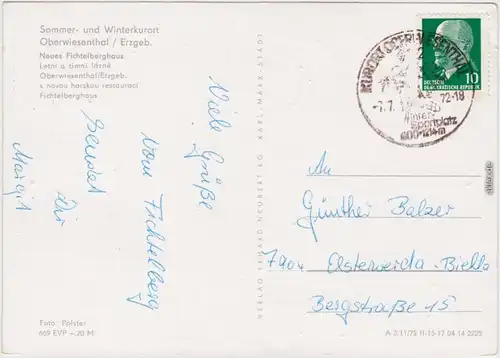 Sommer- und Winterkurort
Oberwiesenthal / Erzgeb.
Neues Fichtelberghaus
Letni a zimni lázně
Oberwiesenthal/Erzgeb.
s novou horskou restaurací
Fichtelberghaus
Viele Grüße
vom Fichtelberg
sendet Dir
Margit
Foto: Polster
669 EVP –.20 M
VERLAG ERHARD NEUBERT KG KARL-MARX-STADT
KURORT OBERWIESENTHAL
72-18
Sportplatz
DEUTSCHE
DEMOKRATISCHE REPUBLIK
10
An
Günther Balzer
7904 Elsterwerda-Biehla
Bergstraße 15
A 2/11/72 II-15-17 04 14 2225